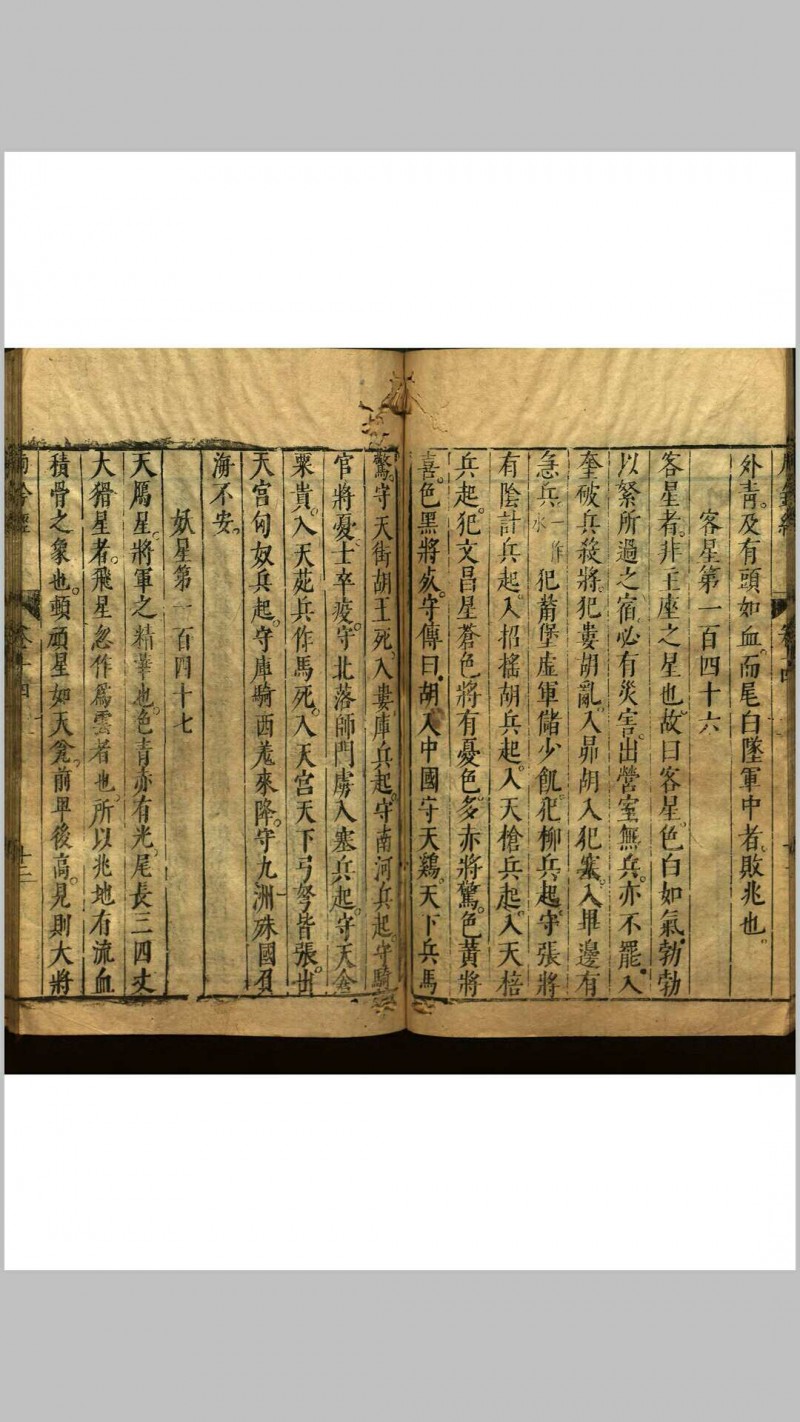 外靑及有頭如血而尾白墜軍中者敗兆也
客星第一百四十六
客星者非王座之星也故曰客星色白如氣勃勃
以絮所過之宿必有災害出營室無兵亦不罷入
奎破兵殺將犯婁胡亂入昴胡入犯塞入畢邊有
急兵一作水犯蓄堡虛軍儲少飢犯柳兵起守張將
有陰計兵起入招搖胡兵起入天槍兵起入天棓
兵起犯文昌星蒼色將有憂色多赤將驚色黃將
喜色黑將死守傳曰胡入中國守天鷄天下兵馬
驚守天街胡王死入婁庫兵起守南河兵起守騎
官將憂士卒疫守北落師門虜入塞兵起守天倉
粟貴入天苑兵作馬死入天宮天下弓弩皆張出
天宮匈奴兵起守庫騎西羗來降守九洲殊國負
海不安
妖星第一百四十七
天鴈星將軍之精華也色青亦有光尾長三四丈
大猾星者飛星忽作爲雲者也所以兆地有流血
積骨之象也頓頑星如天瓮前卑後高見則大將